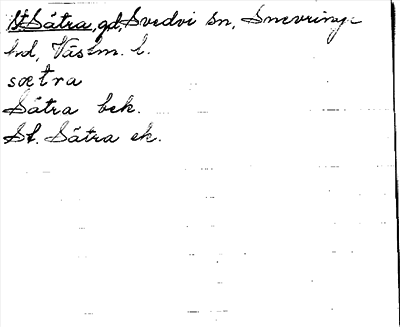 St. Sätra, gd, Svedvi sn, Snevringe
hd, Västm. l.
sætra
Sätra bek.
St. Sätra ek.